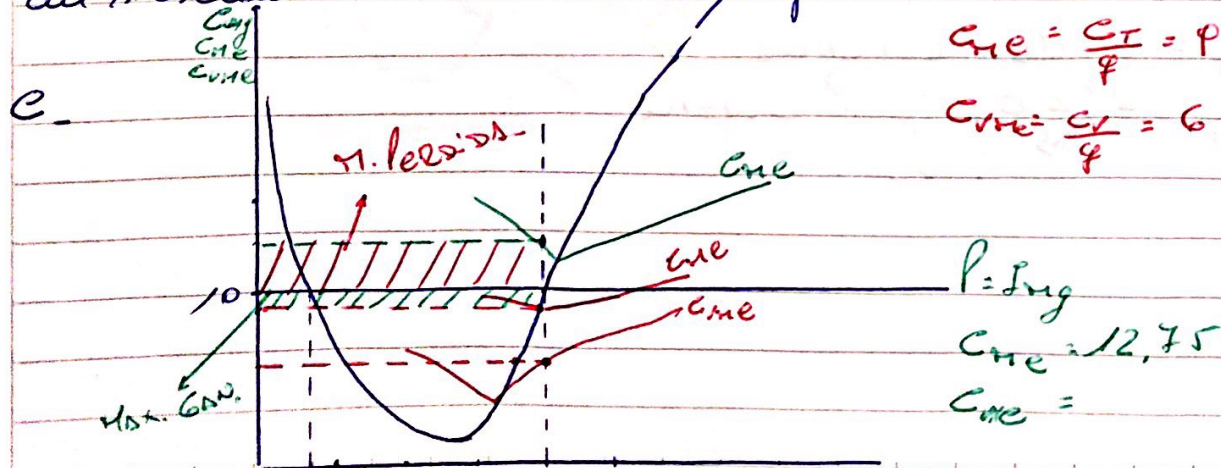 CMg
CMe
CVMe
C
M. Perdida
CMe
CMe
CMe
10
Max. Gan.
CMe = CT/q = 9
CVMe = CV/q = 6
P = IMg
CMe = 12,75
CMe =